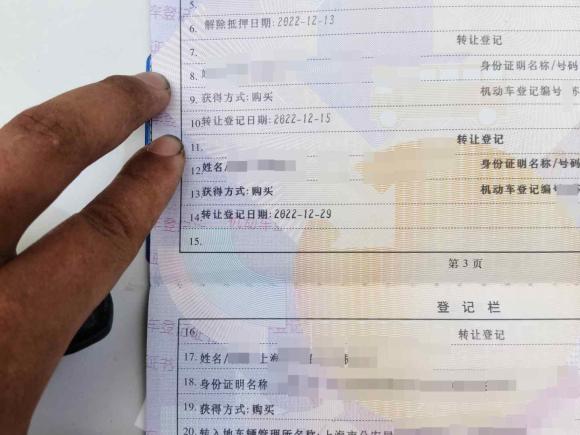 5.
6. 解除抵押日期:2022-12-13
7. 转让登记
8. 身份证明名称/号码
9. 获得方式:购买 机动车登记编号
10. 转让登记日期:2022-12-15
11. 转让登记
12. 姓名/ 身份证明名称/号码
13. 获得方式:购买 机动车登记编号
14. 转让登记日期:2022-12-29
15.
第 3 页
登 记 栏
16. 转让登记
17. 姓名/ 上海
18. 身份证明名称
19. 获得方式:购买
20. 转入地车辆管理所名称:上海市公安局